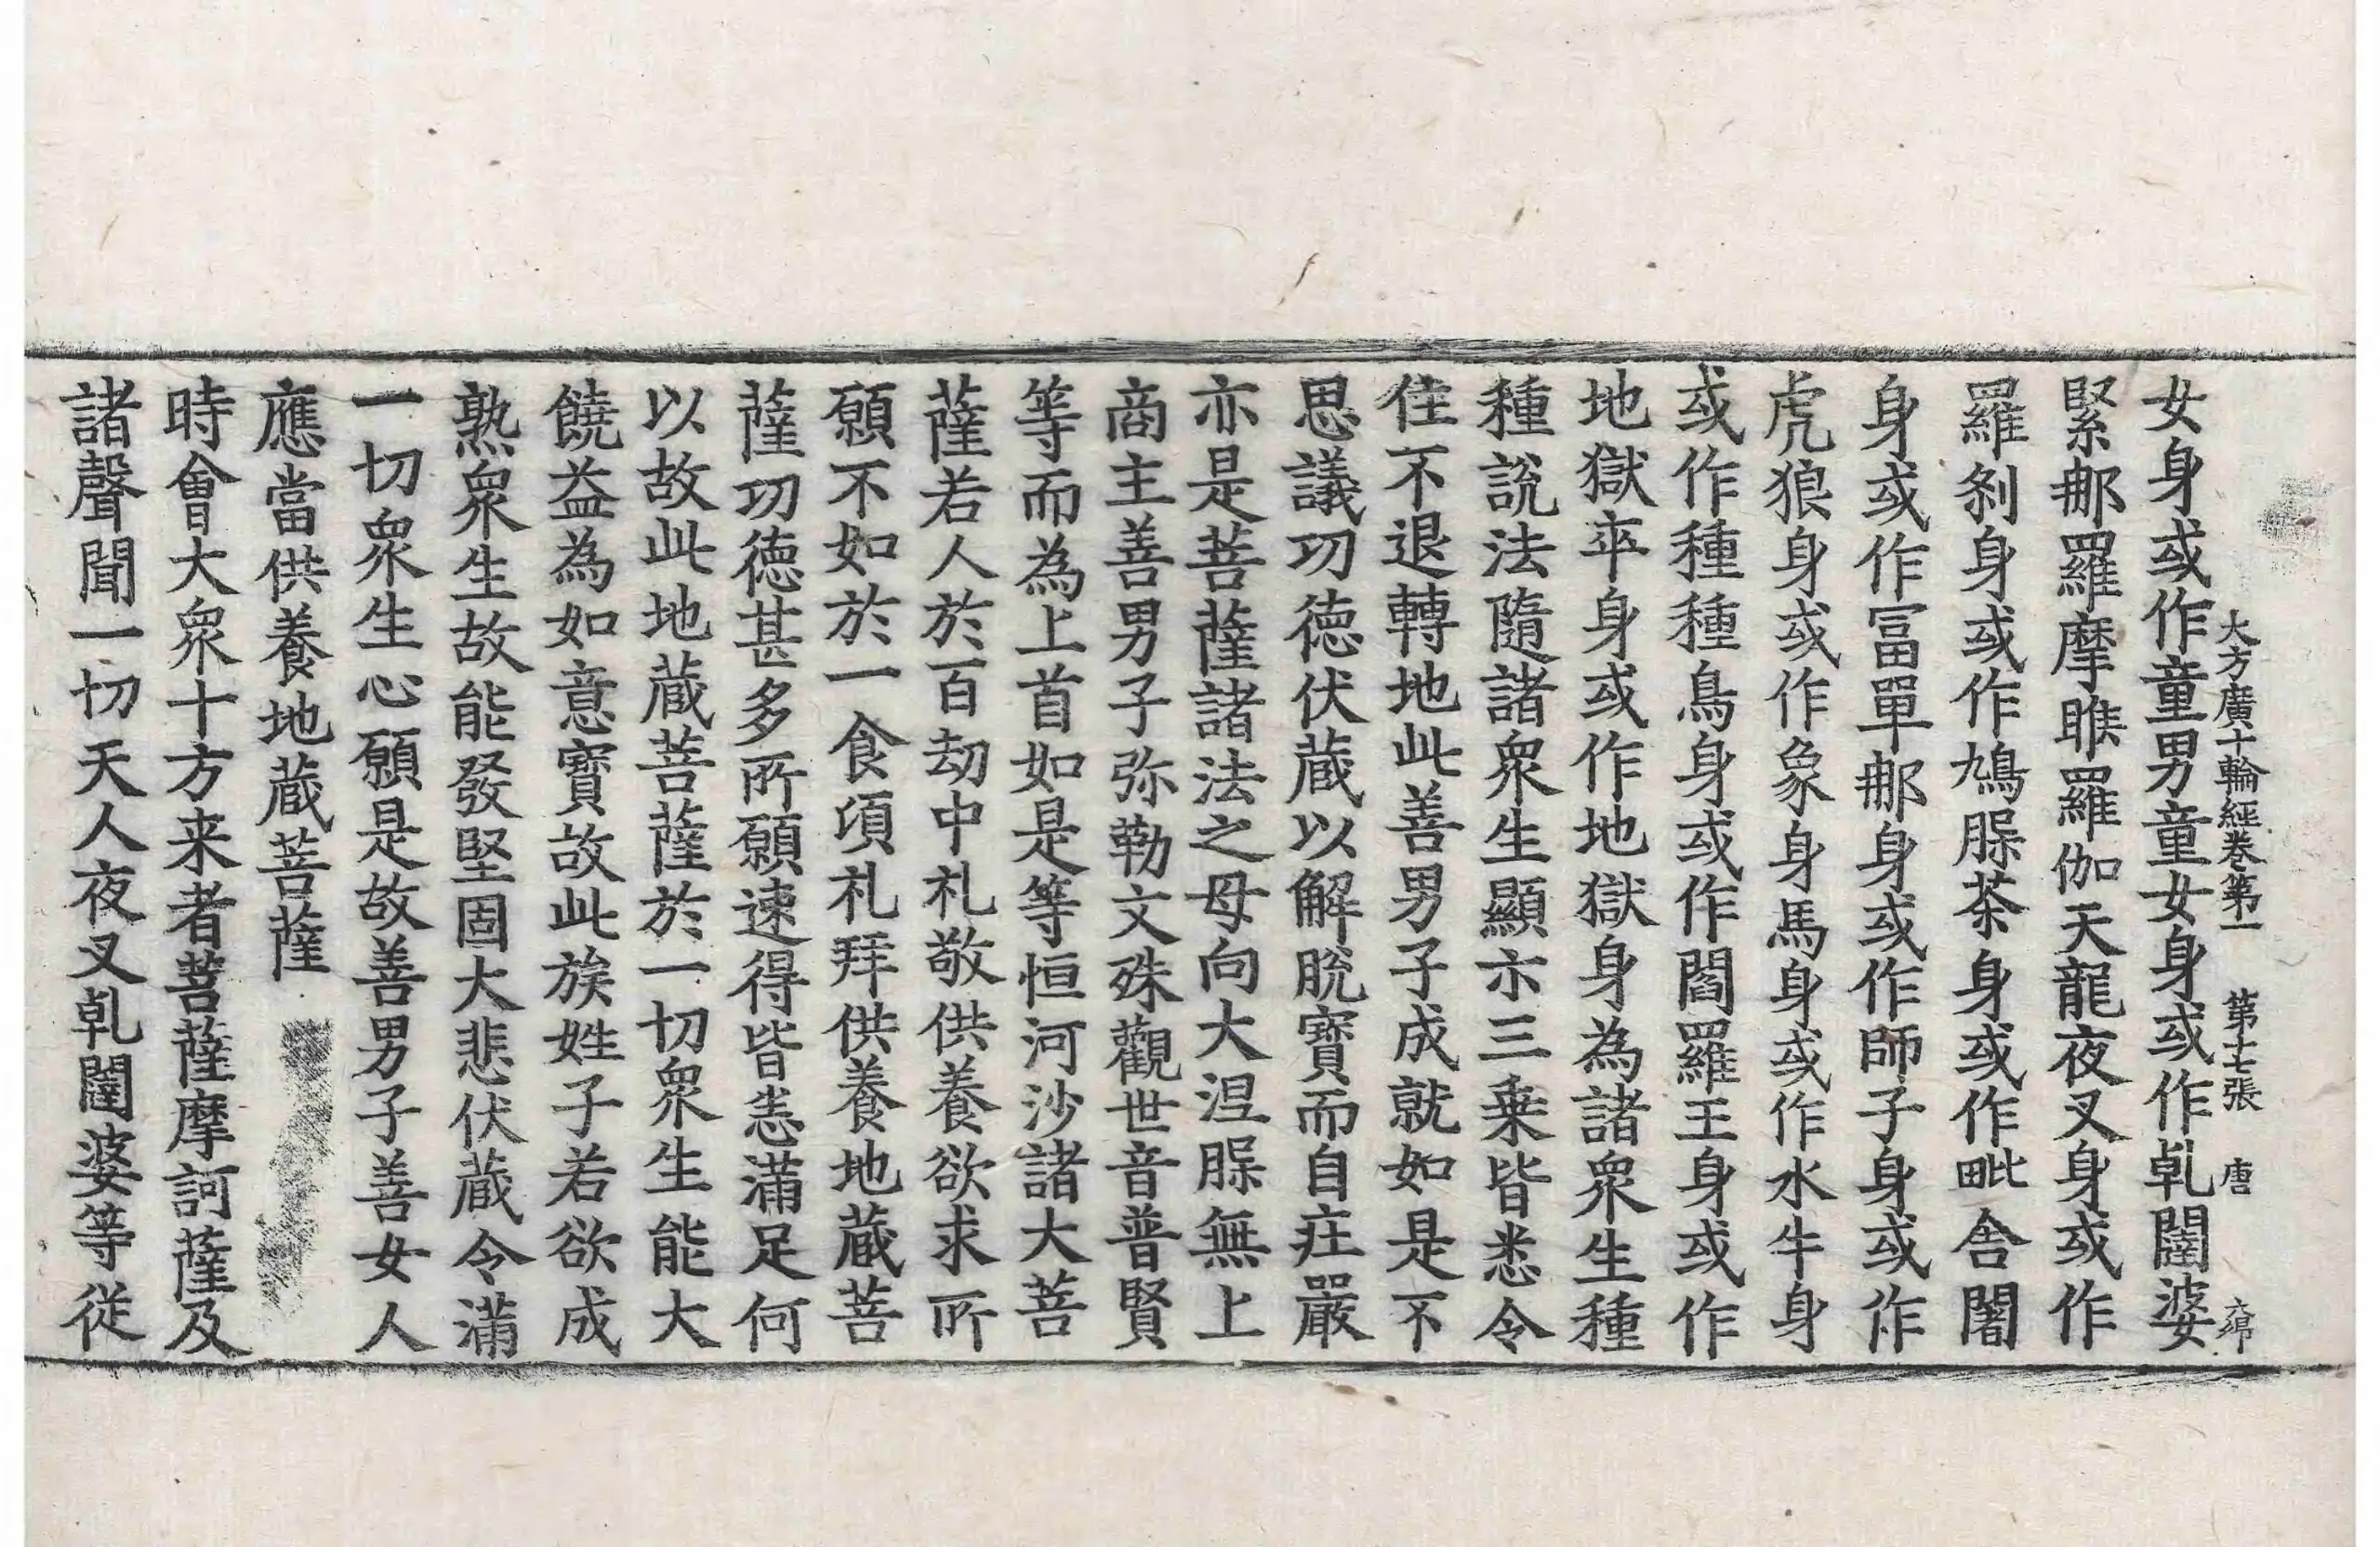 大方廣十輪經卷第一 第十七張 唐
女身或作童男童女身或作乹闥婆
緊那羅摩睺羅伽天龍夜叉身或作
羅刹身或作鳩脲茶身或作毗舎闍
身或作冨單那身或作師子身或作
虎狼身或作象身馬身或作水牛身
或作種種鳥身或作閻羅王身或作
地獄卒身或作地獄身為諸衆生種
種說法隨諸衆生顯示三乗皆悉令
住不退轉地此善男子成就如是不
思議功徳伏蔵以解脫寶而自庄嚴
亦是菩薩諸法之母向大涅脲無上
商主善男子弥勒文殊觀世音普賢
等而為上首如是等恒河沙諸大菩
薩若人於百劫中礼敬供養欲求所
願不如於一食頃礼拜供養地蔵菩
薩功徳甚多所願速得皆悉滿足何
以故此地蔵菩薩於一切衆生能大
饒益為如意寶故此族姓子若欲成
熟衆生故能發堅固大悲伏蔵令滿
一切衆生心願是故善男子善女人
應當供養地蔵菩薩
時會大衆十方来者菩薩摩訶薩及
諸聲聞一切天人夜叉乹闥婆等従